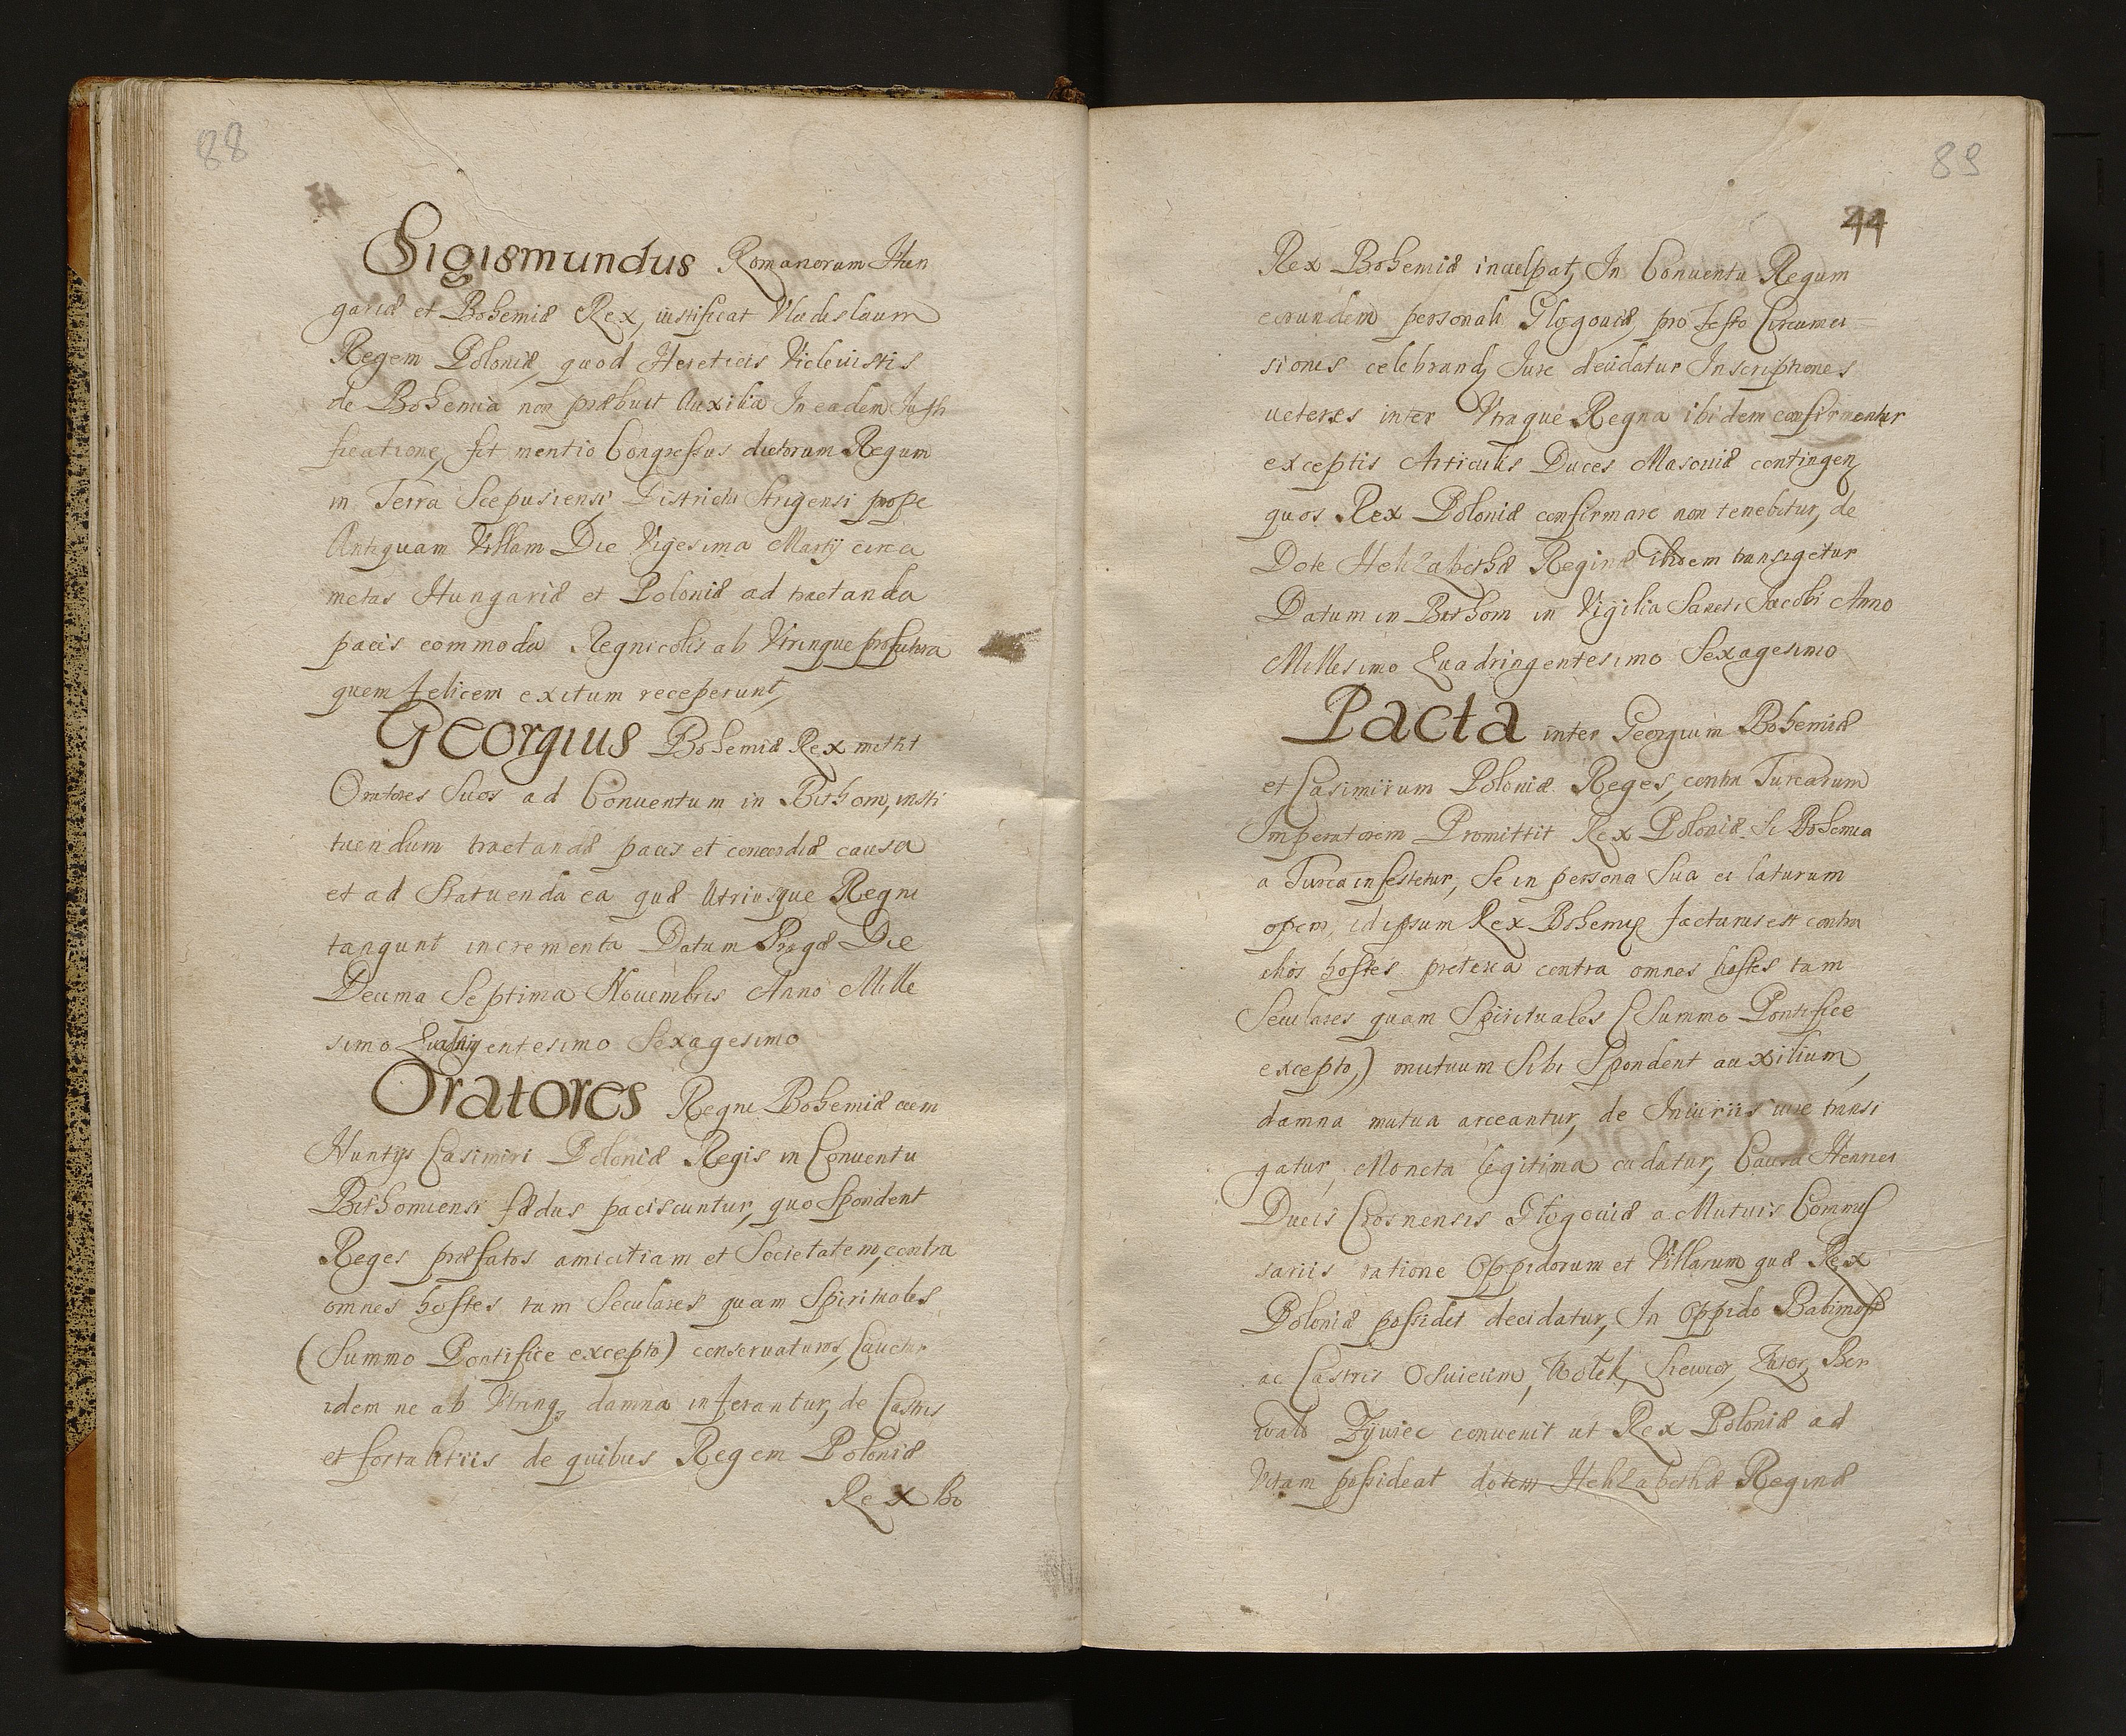 88
Sigismundus Romanorum Hun
gariæ et Bohemiæ Rex, iustificat Vladislaum
Regem Poloniæ, quod Hereticis Viclevistis
de Bohemia non præbuit Auxilia In eadem Justi
ficatione, fit mentio Congressus dictorum Regum
in Terra Scepusiensi, Districtu Strigensi prope
Antiquam Villam Die Vigesima Martij circa
metas Hungariæ et Poloniæ ad tractanda
pacis commoda Regnicolis ab Vtrinque profutura
quem felicem exitum receperunt,
Georgius Bohemiæ Rex mittit
Oratores Suos ad Conuentum in Bithom, insti
tuendum tractandæ pacis et concordiæ causa
et ad Statuenda ea quæ Utriusque Regni
tangunt incrementa Datum Pragæ Die
Decima Septima Nouembris Anno Mille
simo Quadringentesimo Sexagesimo
Oratores Regni Bohemiæ cum
Nuntijs Casimiri Poloniæ Regis in Conuentu
Bithomiensi fædus paciscuntur, quo Spondent
Reges præfatos amicitiam et Societatem, contra
omnes hostes tam Seculares quam Spirituales
(Summo Pontifice excepto) conseruaturos, Cauetur
idem ne ab Vtrinq3 damna inferantur, de Castris
et fortalitiis de quibus Regem Poloniæ
Rex Bo
89
44
Rex Bohemiæ inculpat, In Conuentu Regum
eorundem personali Glogouiæ, pro festo Circumci
sionis celebrand, Iure decidatur Inscriptiones
ueteres inter Vtraque Regna ibidem confirmentur
exceptis Articulis Duces Masouiæ contingen
quos Rex Poloniæ confirmare non tenebitur, de
Dote Helizabethæ Reginæ ibidem transigetur
Datum in Bithom in Vigilia Sancti Jacobi Anno
Millesimo Quadringentesimo Sexagesimo
Pacta inter Georgium Bohemiæ
et Casimirum Poloniæ Reges, contra Turcarum
Imperatorem Promittit Rex Poloniæ Si Bohemia
a Turca infestetur, Se in persona Sua ei laturum
opem, id ipsum Rex Bohemiæ facturus est contra
alios hostes pretera contra omnes hostes tam
Seculares quam Spirituales (Summo Pontifice
excepto,) mutuum Sibi Spondent auxilium,
damna mutua arceantur, de Iniuriis iure transi
gatur, Moneta legitima cudatur, Causa Henrici
Ducis Crosnensis Glogouiæ a Mutuis Commis
sariis ratione Oppidorum et Villarum quæ Rex
Poloniæ possidet decidatur, In Oppido Babimost
ac Castris Osuiecim, Wolek, Sieuior, Zator, Ber
wald Zÿwiec conuenit ut Rex Poloniæ ad
Vitam possideat dotem Helizabethæ Reginæ